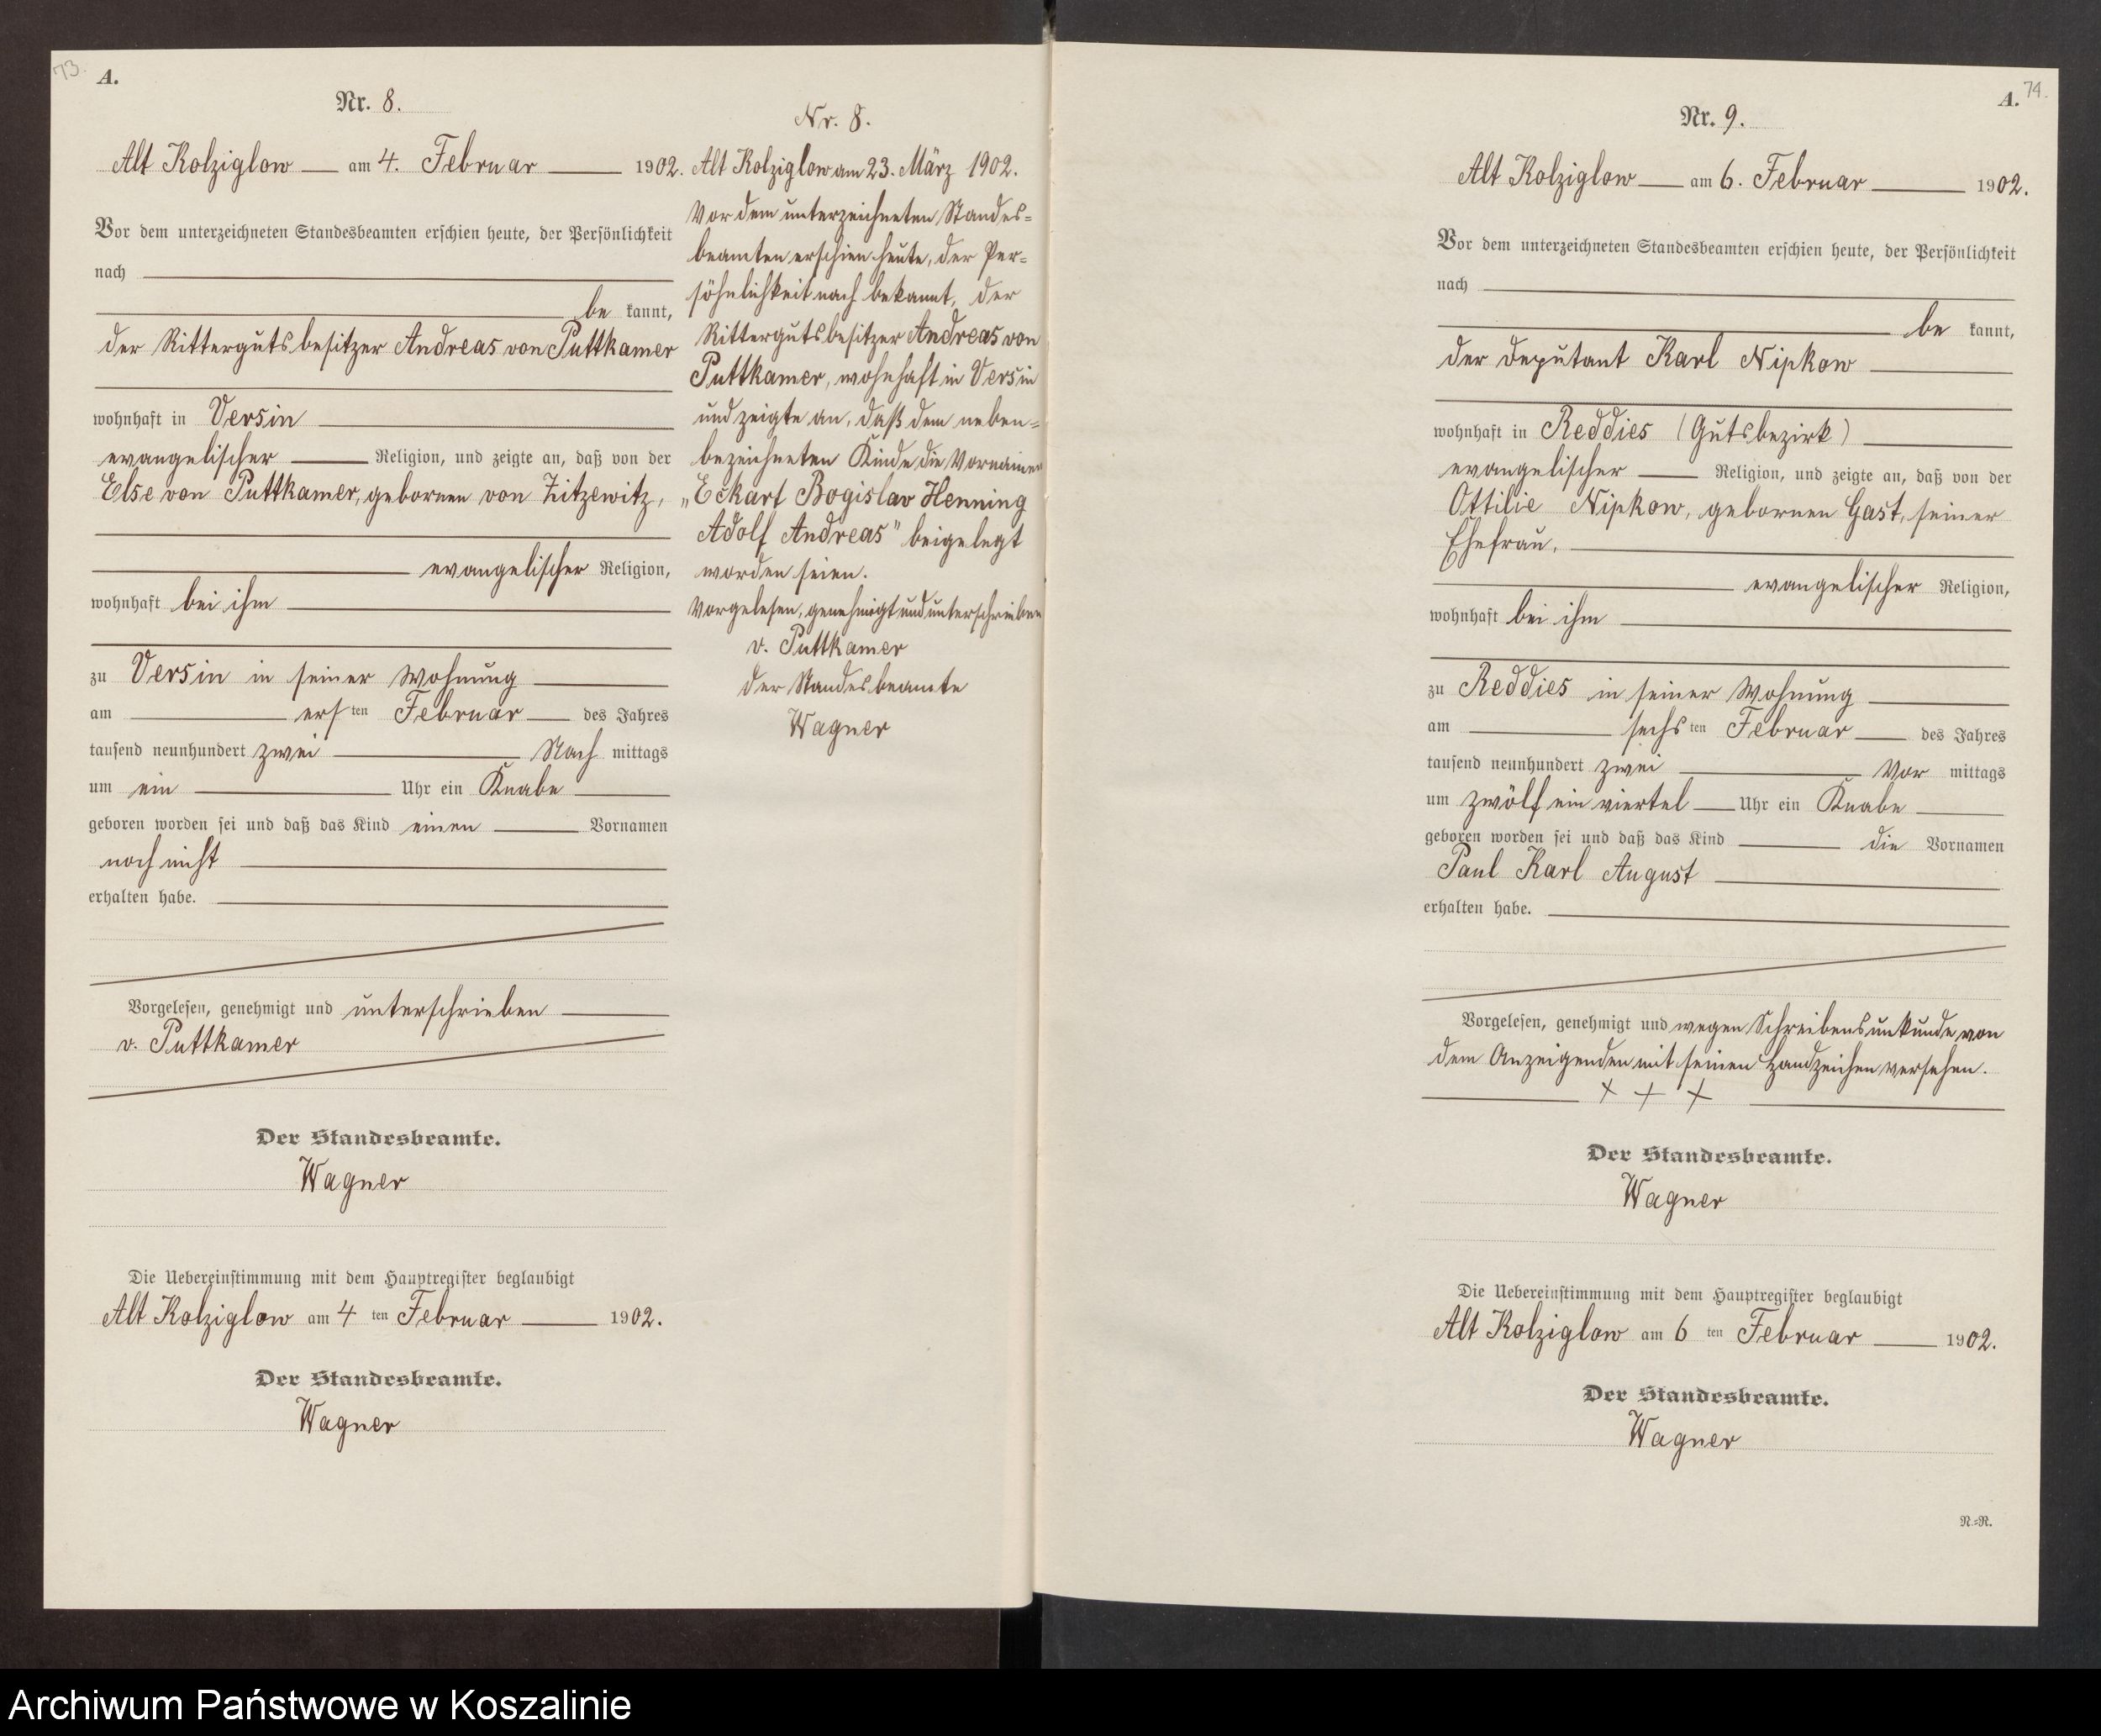 73.
A.
Nr. 8.
Alt Kolziglow am 4. Februar 1902.
Vor dem unterzeichneten Standesbeamten erschien heute, der Persönlichkeit
nach
be kannt,
der Rittergutsbesitzer Andreas von Puttkamer
wohnhaft in Versin
evangelischer Religion, und zeigte an, daß von der
Else von Puttkamer, gebornen von Zitzewitz,
evangelischer Religion,
wohnhaft bei ihm
zu Versin in seiner Wohnung
am ersten Februar des Jahres
tausend neunhundert zwei Nach mittags
um ein Uhr ein Knabe
geboren worden sei und daß das Kind einen Vornamen
noch nicht
erhalten habe.
Vorgelesen, genehmigt und unterschrieben
v. Puttkamer
Der Standesbeamte.
Wagner
Die Uebereinstimmung mit dem Hauptregister beglaubigt
Alt Kolziglow am 4 ten Februar 1902.
Der Standesbeamte.
Wagner
Nr. 8.
Alt Kolziglow am 23. März 1902.
Vor dem unterzeichneten Standes=
beamten erschien heute, der Per=
söhnlichkeit nach bekannt, der
Rittergutsbesitzer Andreas von
Puttkamer, wohnhaft in Versin
und zeigte an, daß dem neben=
bezeichneten Kinde die Vornamen
„Eckart Bogislav Henning
Adolf Andreas" beigelegt
worden seien.
Vorgelesen, genehmigt und unterschrieben
v. Puttkamer
Der Standesbeamte
Wagner
74.
A.
Nr. 9.
Alt Kolziglow am 6. Februar 1902.
Vor dem unterzeichneten Standesbeamten erschien heute, der Persönlichkeit
nach
be kannt,
der Deputant Karl Nipkow
wohnhaft in Reddies (Gutsbezirk)
evangelischer Religion, und zeigte an, daß von der
Ottilie Nipkow, gebornen Gast, seiner
Ehefrau,
evangelischer Religion,
wohnhaft bei ihm
zu Reddies in seiner Wohnung
am sechsten Februar des Jahres
tausend neunhundert zwei Vor mittags
um zwölf ein viertel Uhr ein Knabe
geboren worden sei und daß das Kind die Vornamen
Paul Karl August
erhalten habe.
Vorgelesen, genehmigt und wegen Schreibensunkunde von
dem Anzeigenden mit seinen Handzeichen versehen.
+ + +
Der Standesbeamte.
Wagner
Die Uebereinstimmung mit dem Hauptregister beglaubigt
Alt Kolziglow am 6 ten Februar 1902.
Der Standesbeamte.
Wagner
N.=R.
Archiwum Państwowe w Koszalinie